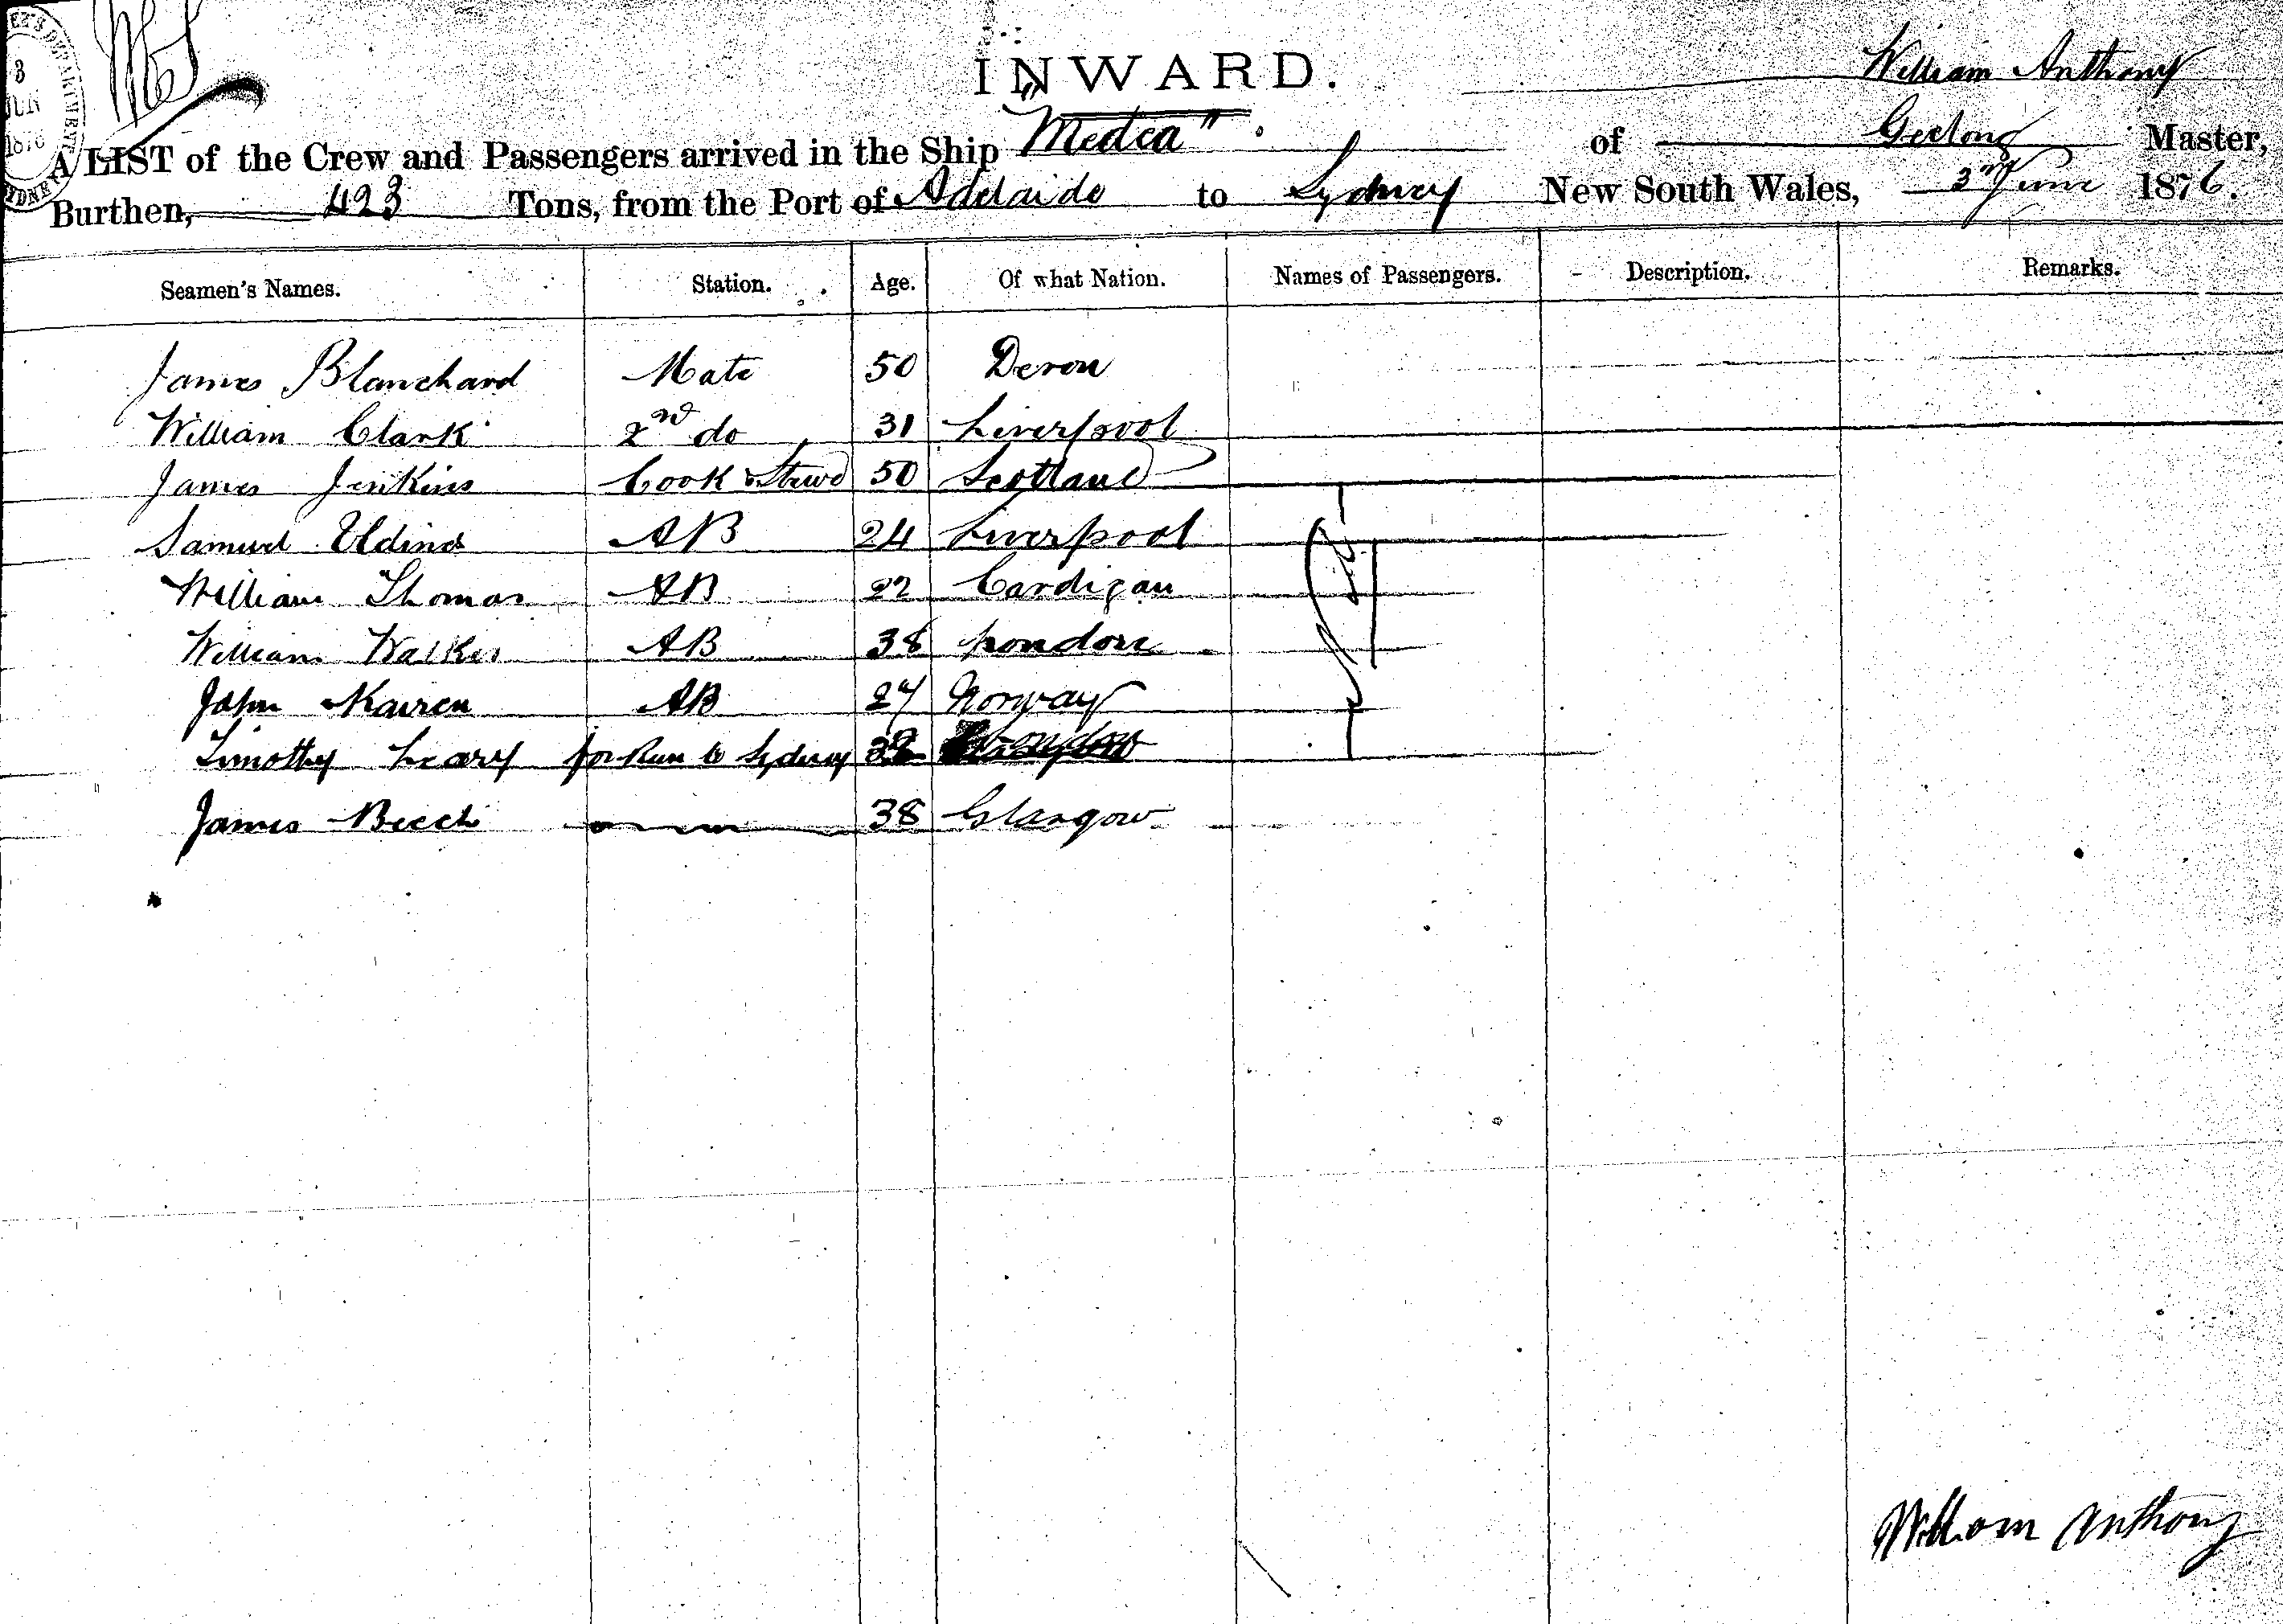 INWARD.
William Anthony
A LIST of the Crew and Passengers arrived in the Ship "Medea" of Geelong Master,
Burthen, 423 Tons, from the Port of Adelaide to Sydney New South Wales, 3rd June 1876.
Seamen's Names. Station. Age. Of what Nation. Names of Passengers. Description. Remarks.
James Blanchard Mate 50 Devon
William Clark 2nd do 31 Liverpool
James Jenkins Cook & Stewd 50 Scotland
Samuel 24 AB Liverpool
William Thomas AB 22 Cardigan
William Walker AB 38 London
John AB 27 Norway
Timothy Leary for Run to Sydney
James Beech 38 Glasgow
William Anthony